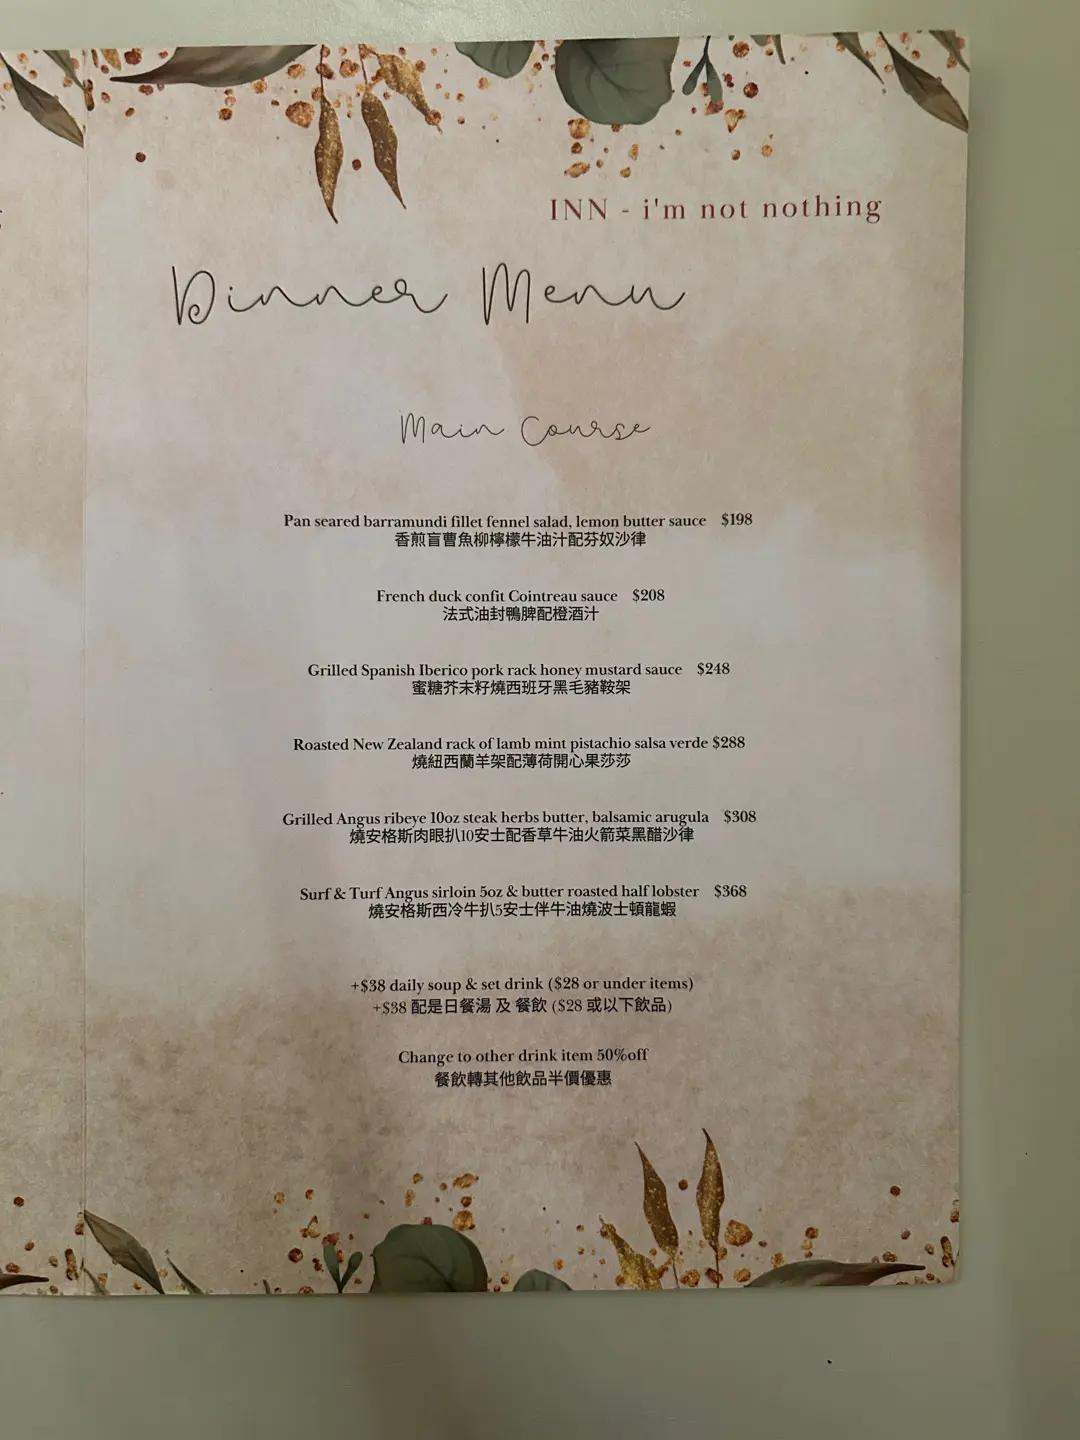 INN - i'm not nothing
Dinner Menu
Main Course
Pan seared barramundi fillet fennel salad, lemon butter sauce $198
香煎盲曹魚柳檸檬牛油汁配芬奴沙律
French duck confit Cointreau sauce $208
法式油封鴨脾配橙酒汁
Grilled Spanish Iberico pork rack honey mustard sauce $248
蜜糖芥末籽燒西班牙黑毛豬鞍架
Roasted New Zealand rack of lamb mint pistachio salsa verde $288
燒紐西蘭羊架配薄荷開心果莎莎
Grilled Angus ribeye 10oz steak herbs butter, balsamic arugula $308
燒安格斯肉眼扒10安士配香草牛油火箭菜黑醋沙律
Surf & Turf Angus sirloin 5oz & butter roasted half lobster $368
燒安格斯西冷牛扒5安士伴牛油燒波士頓龍蝦
+$38 daily soup & set drink ($28 or under items)
+$38 配是日餐湯 及 餐飲 ($28 或以下飲品)
Change to other drink item 50%off
餐飲轉其他飲品半價優惠